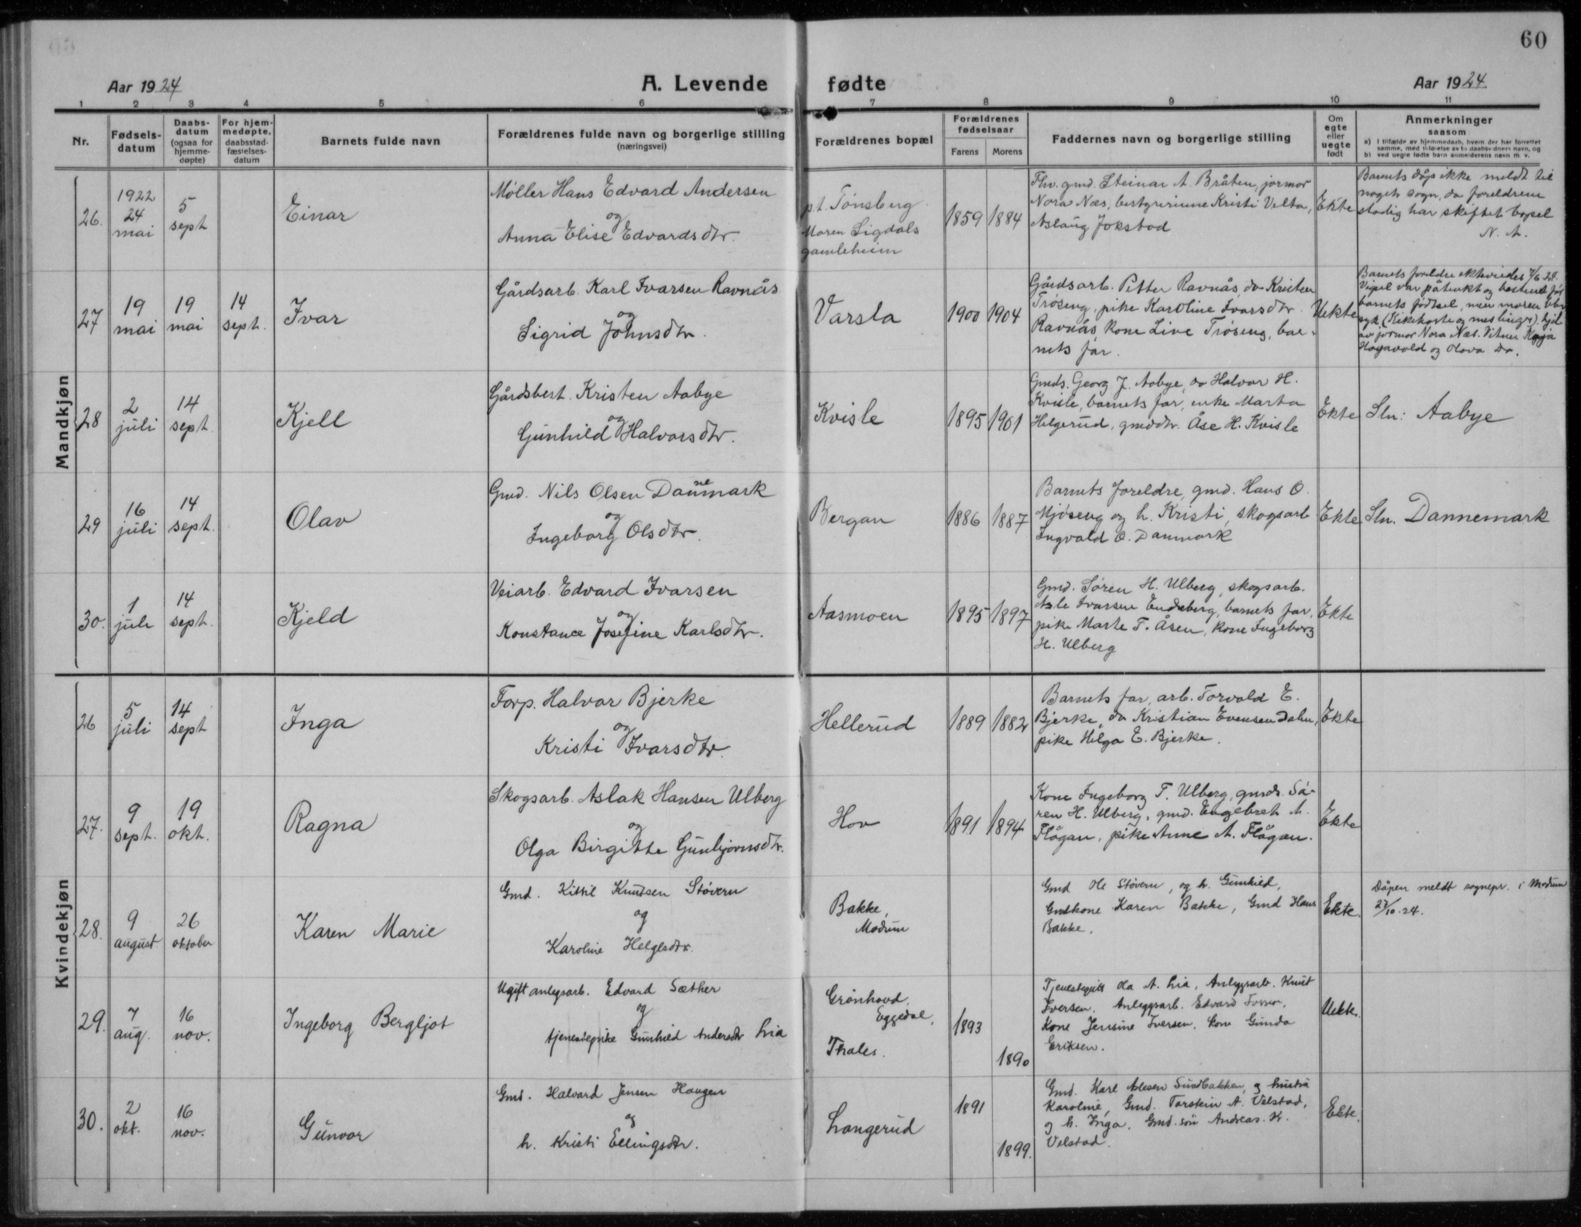 60
Aar 1924
A. Levende fødte
Aar 1924
1 2 3 4 5 6 7 8 9 10 11
Nr.
Fødsels-
datum
Daabs-
datum
(ogsaa for
hjemme-
døpte)
For hjem-
medøpte,
daabsstad-
fæstelses-
datum
Barnets fulde navn
Forældrenes fulde navn og borgerlige stilling
(næringsvei)
Forældrenes bopæl
Forældrenes
fødselsaar
Farens Morens
Faddernes navn og borgerlige stilling
Om
egte
eller
uegte
født
Anmerkninger
saasom
Mandkjøn
26.
1922
24
mai
5
sept
Einar
Møller Hans Edvard Andersen
og
Anna Elise Edvardsdtr.
p.t. Tønsberg
Moren Sigdals
gamleheim
1859 1884
Fhv. gmd. Steinar A. Bråten, jormor
Nora Næs, bestyrerinne Kristi Velta,
Aslaug Jokstad
Ekte
Barnets dåp ikke meldt til
noget sogn, da foreldrene
stadig har skiftet bopel
N. A.
27
19
mai
19
mai
14
sept.
Ivar
Gårdsarb. Karl Ivarsen Ravnås
og
Sigrid Johnsdtr.
Varsla
1900 1904
Gårdsarb. Petter Ravnås, do Kristen
Trøseng, pike Karoline Ivarsdtr.
Ravnås, kone Live Trøseng, bar-
nets far.
Uekte
Barnets foreldre ektevviedes 7/6 24.
Vigsel var påtenkt og bestemt før
barnets fødsel, men moren blev
syk (Kikhoste og meslinger) hjd.
av jormor Nora Næs. Vitner Kaja
Hagavold og Olava do.
28
2
juli
14
sept.
Kjell
Gårdsbest. Kristen Aabye
og
Gunhild Halvorsdtr.
Kvisle
1895 1901
Gmds. Georg J. Aabye, do Halvor H.
Kvisle, barnets far, enke Marta
Helgerud, gmddtr. Åse H. Kvisle
Ekte
Sln: Aabye
29
16
juli
14
sept.
Olav
Gmd. Nils Olsen Dannemark
og
Ingeborg Olsdtr.
Bergan
1886 1887
Barnets foreldre, gmd. Hans O.
Mjøseng og h. Kristi, skogsarb
Ingvald O. Danmark
Ekte
Sln. Dannemark
30.
1
juli
14
sept.
Kjeld
Veiarb. Edvard Ivarsen
og
Konstance Josefine Karlsdtr.
Aasmoen
1895 1897
Gmd. Søren H. Ulberg, skogsarb.
Asle Ivarsen Endeberg, barnets far,
pike Marte T. Åsen, kone Ingeborg
H. Ulberg
Ekte
Kvindekjøn
26
5
juli
14
sept
Inga
Forp. Halvor Bjerke
og
Kristi Ivarsdtr.
Hellerud
1889 1882
Barnets far, arb. Torvald E.
Bjerke, do Kristian Evensen Dalen,
pike Helga E. Bjerke.
Ekte
27.
9
sept.
19
okt.
Ragna
Skogsarb. Aslak Hansen Ulberg
og
Olga Birgitte Gunbjørnsdtr.
Hov
1891 1894
Kone Ingeborg T. Ulberg, gmds. Sø-
ren H. Ulberg, gmd. Engebret A.
Flågan, pike Anne A. Flågan.
Ekte
28.
9
august
26
oktober
Karen Marie
Gmd. Kittil Knutsen Støvern
og
Karoline Helgesdtr.
Bakke,
Modum
Gmd Ole Støvern, og h. Gunhild,
Gmdkone Karen Bakke, Gmd Hans
Bakke.
Ekte.
Dåpen meldt sognepr. i Modum
27/10-24.
29.
7
aug.
16
nov.
Ingeborg Bergljot
Ugift anlegsarb. Edvard Sæther
og
tjenestepike Gunhild Andersdtr Lia
Grønhovd,
Eggedal,
Thales.
1893
1890
Tjenestegutt Ola A. Lia, Anlegsarb. Knut
Iversen, Anlegsarb. Edvard
Kone Jensine Iversen, kone Gunda
Eriksen.
Uekte.
30.
2
okt.
16
nov.
Gunvor
Gmd. Halvard Jensen Haugen
og
h. Kristi Ellingsdtr.
Langerud
1891
1899.
Gmd. Karl Olesen Sundbakken og hustru
Karoline, Gmd. Torstein A. Velstad,
og h. Inga. Gmd. søn Andreas K.
Velstad.
Ekte.